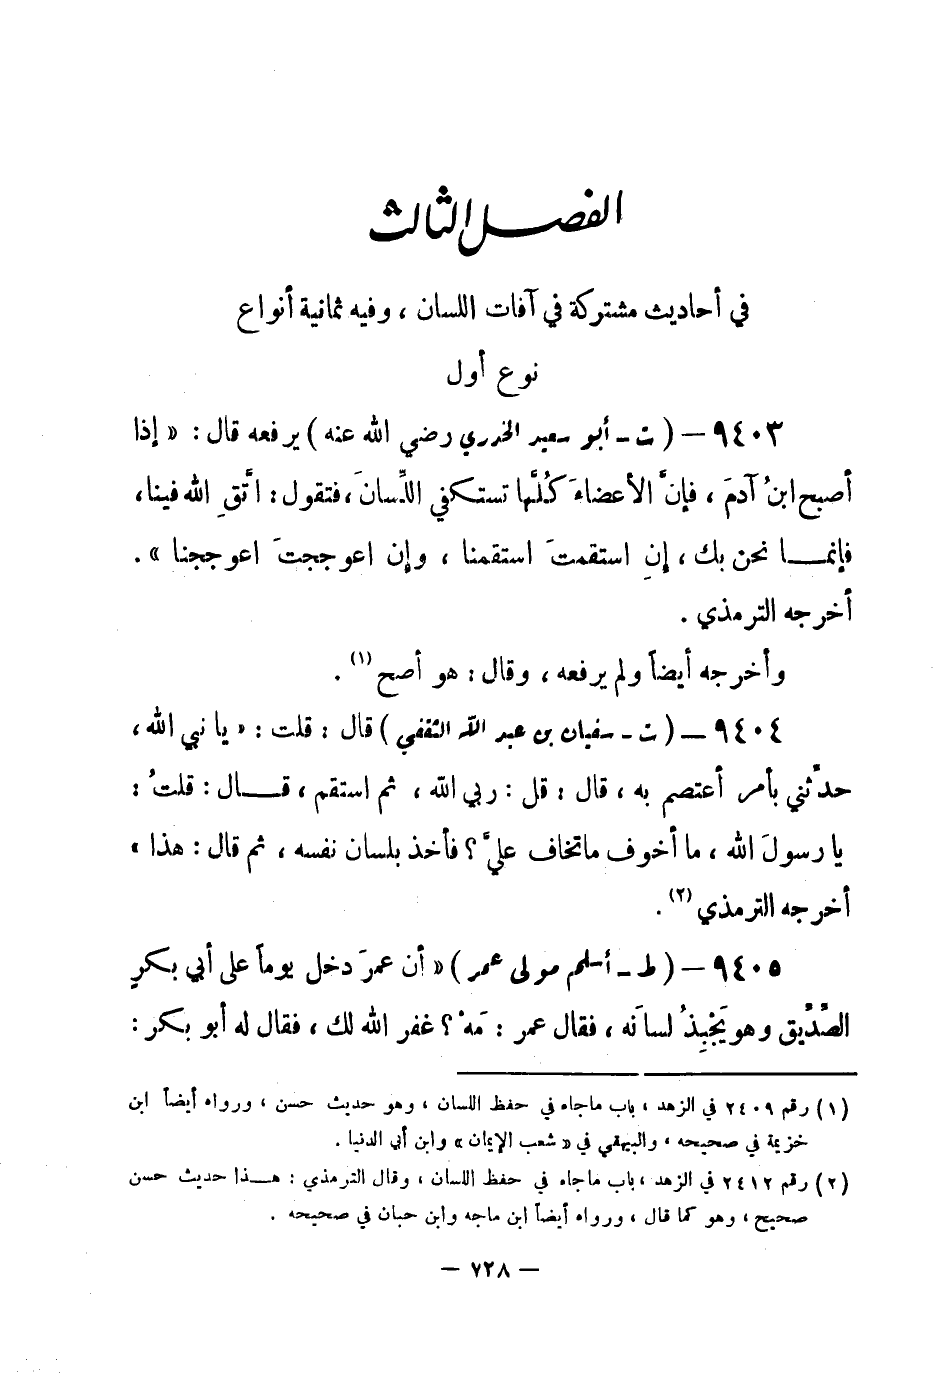 الفصل الثالث
في أحاديث مشتركة في آفات اللسان ، وفيه ثمانية أنواع
نوع أول
٩٤٠٣ – ( ت - أبو سعيد الخدري رضي الله عنه ) يرفعه قال : « إذا
أصبح ابنُ آدمَ ، فإنَّ الأعضاءَ كُلَّها تستكفي اللِّسانَ ، فتقول : اتَّقِ الله فينا ،
فإنمـــا نحن بك ، إنِ استقمتَ استقمنا ، وإن اعوججتَ اعوججنا » .
أخرجه الترمذي .
وأخرجه أيضاً ولم يرفعه ، وقال : هو أصح (١) .
٩٤٠٤ – ( ت - سفيان بن عبد الله الثقفي ) قال : قلت : « يا نبي الله ،
حدِّثني بأمر أعتصم به ، قال : قل : ربي الله ، ثم استقم ، قـــال : قلتُ :
يا رسولَ الله ، ما أخوف ماتخاف عليَّ ؟ فأخذ بلسان نفسه ، ثم قال : هذا »
أخرجه الترمذي (٢) .
٩٤٠٥ – ( ط - أسلم مولى عمر ) « أن عمرَ دخل يوماً على أبي بكرٍ
الصِّدِّيق وهو يَجْبِذُ لسانَه ، فقال عمر : مَهْ ؟ غفر الله لك ، فقال له أبو بكر :
(١) رقم ٢٤٠٩ في الزهد ، باب ماجاء في حفظ اللسان ، وهو حديث حسن ، ورواه أيضاً ابن
خزيمة في صحيحه ، والبيهقي في « شعب الإيمان » وابن أبي الدنيا .
(٢) رقم ٢٤١٢ في الزهد ، باب ماجاء في حفظ اللسان ، وقال الترمذي : هـــذا حديث حسن
صحيح ، وهو كما قال ، ورواه أيضاً ابن ماجه وابن حبان في صحيحه .
– ٧٢٨ –